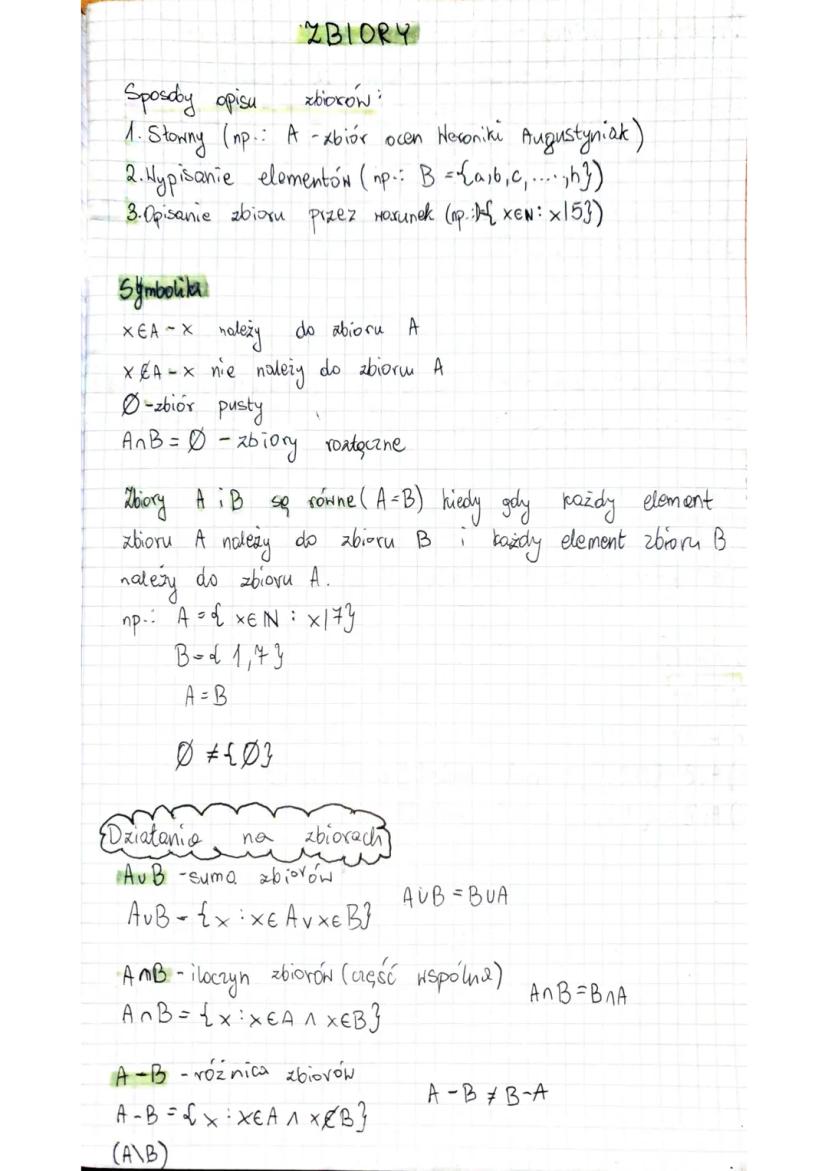 ZBIORY
Sposoby opisu zbiorów:
1. Słowny (np.: A - zbiór ocen Weroniki Augustyniak)
2. Wypisanie elementów (np.: B = {a,b,c,....,h})
3. Opisanie zbioru przez warunek (np.: { x∈N : x|5})
Symbolika
x∈A - x należy do zbioru A
x∉A - x nie należy do zbioru A
Ø - zbiór pusty
A∩B = Ø - zbiory rozłączne
Zbiory A i B są równe (A=B) kiedy gdy każdy element
zbioru A należy do zbioru B i każdy element zbioru B
należy do zbioru A.
np.: A = { x∈N : x|7}
B = { 1,7 }
A = B
Ø ≠ {Ø}
Działania na zbiorach
A∪B - suma zbiorów
A∪B = B∪A
A∪B = {x : x∈A ∨ x∈B}
A∩B - iloczyn zbiorów (część wspólna)
A∩B = B∩A
A∩B = {x : x∈A ∧ x∈B}
A-B - różnica zbiorów
A - B ≠ B - A
A - B = {x : x∈A ∧ x∉B}
(A\B)